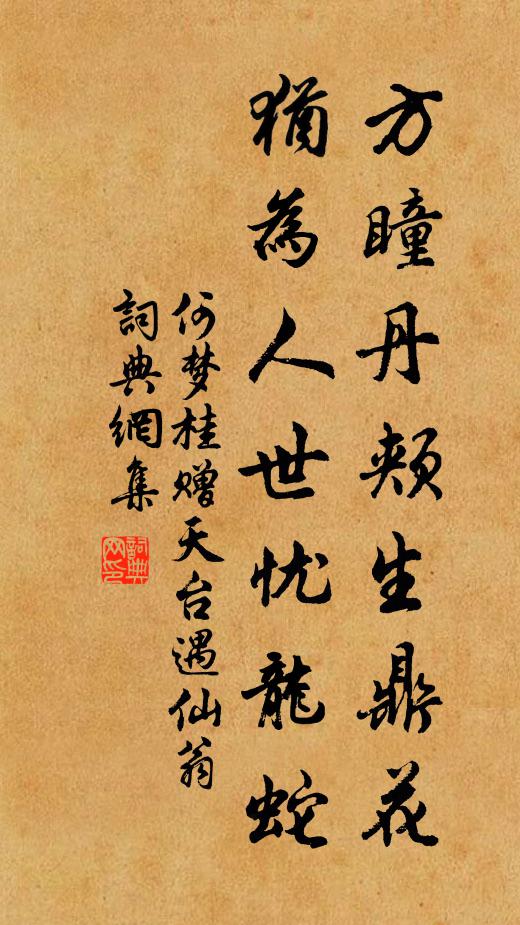 方瞳丹颊生鼎花
猶為人世忧龍蛇
何梦桂赠天台遇仙翁
詞典網集
詞典网印